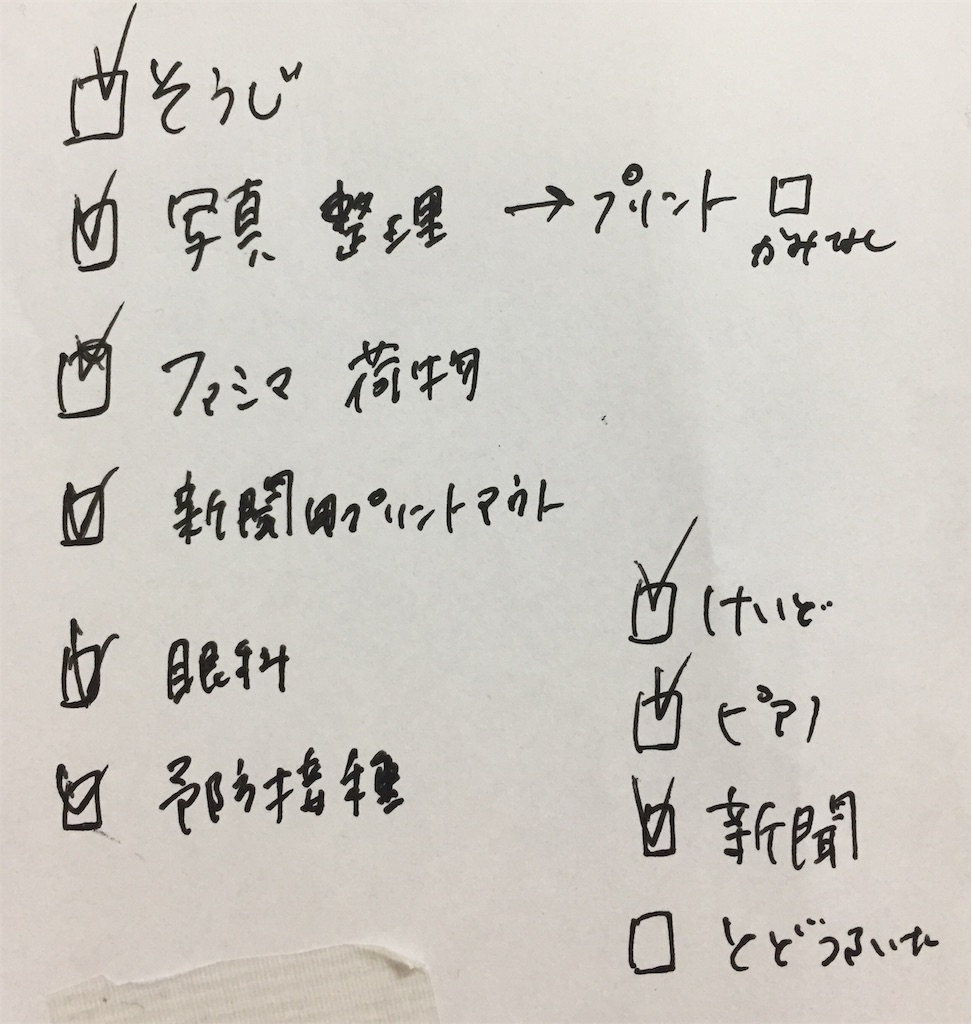 ☑ そうじ
☑ 写真 整理 → プリント □
かみなし
☑ ファミマ 荷物
☑ 新聞用プリントアウト
☑ 眼科
☑ 予防接種
☑ けいど
☑ ピアノ
☑ 新聞
□